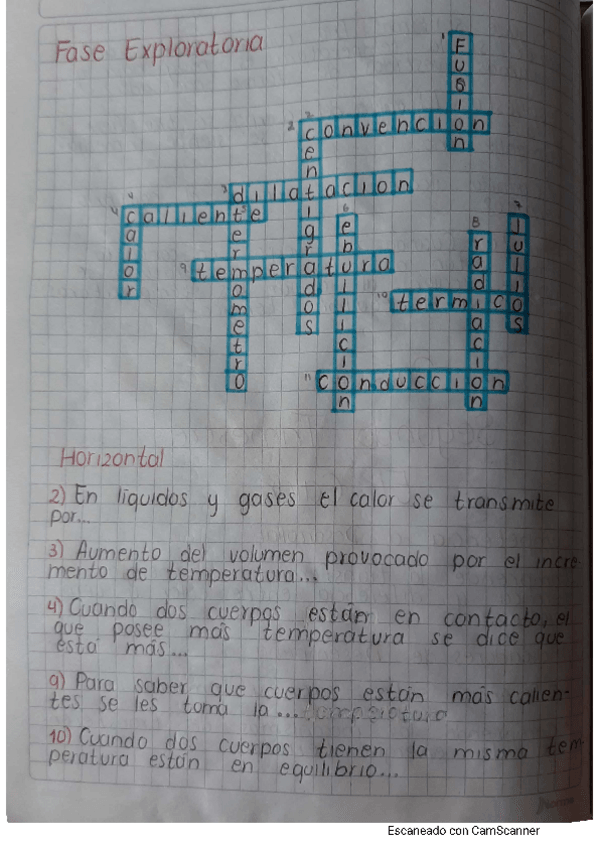 Fase Exploratoria
1
Fusion
2
2
convencion
centigrados
3
dilatacion
4
4
caliente
calor
5
termometro
6
ebullicion
7
Julios
8
radiacion
9
temperatura
10
termico
11
conduccion
Horizontal
2) En liquidos y gases el calor se transmite
por...
3) Aumento del volumen provocado por el incre-
mento de temperatura...
4) Cuando dos cuerpos están en contacto, el
que posee más temperatura se dice que
está más...
9) Para saber que cuerpos están más calien-
tes se les toma la... temperatura
10) Cuando dos cuerpos tienen la misma tem-
peratura están en equilibrio...
Escaneado con CamScanner